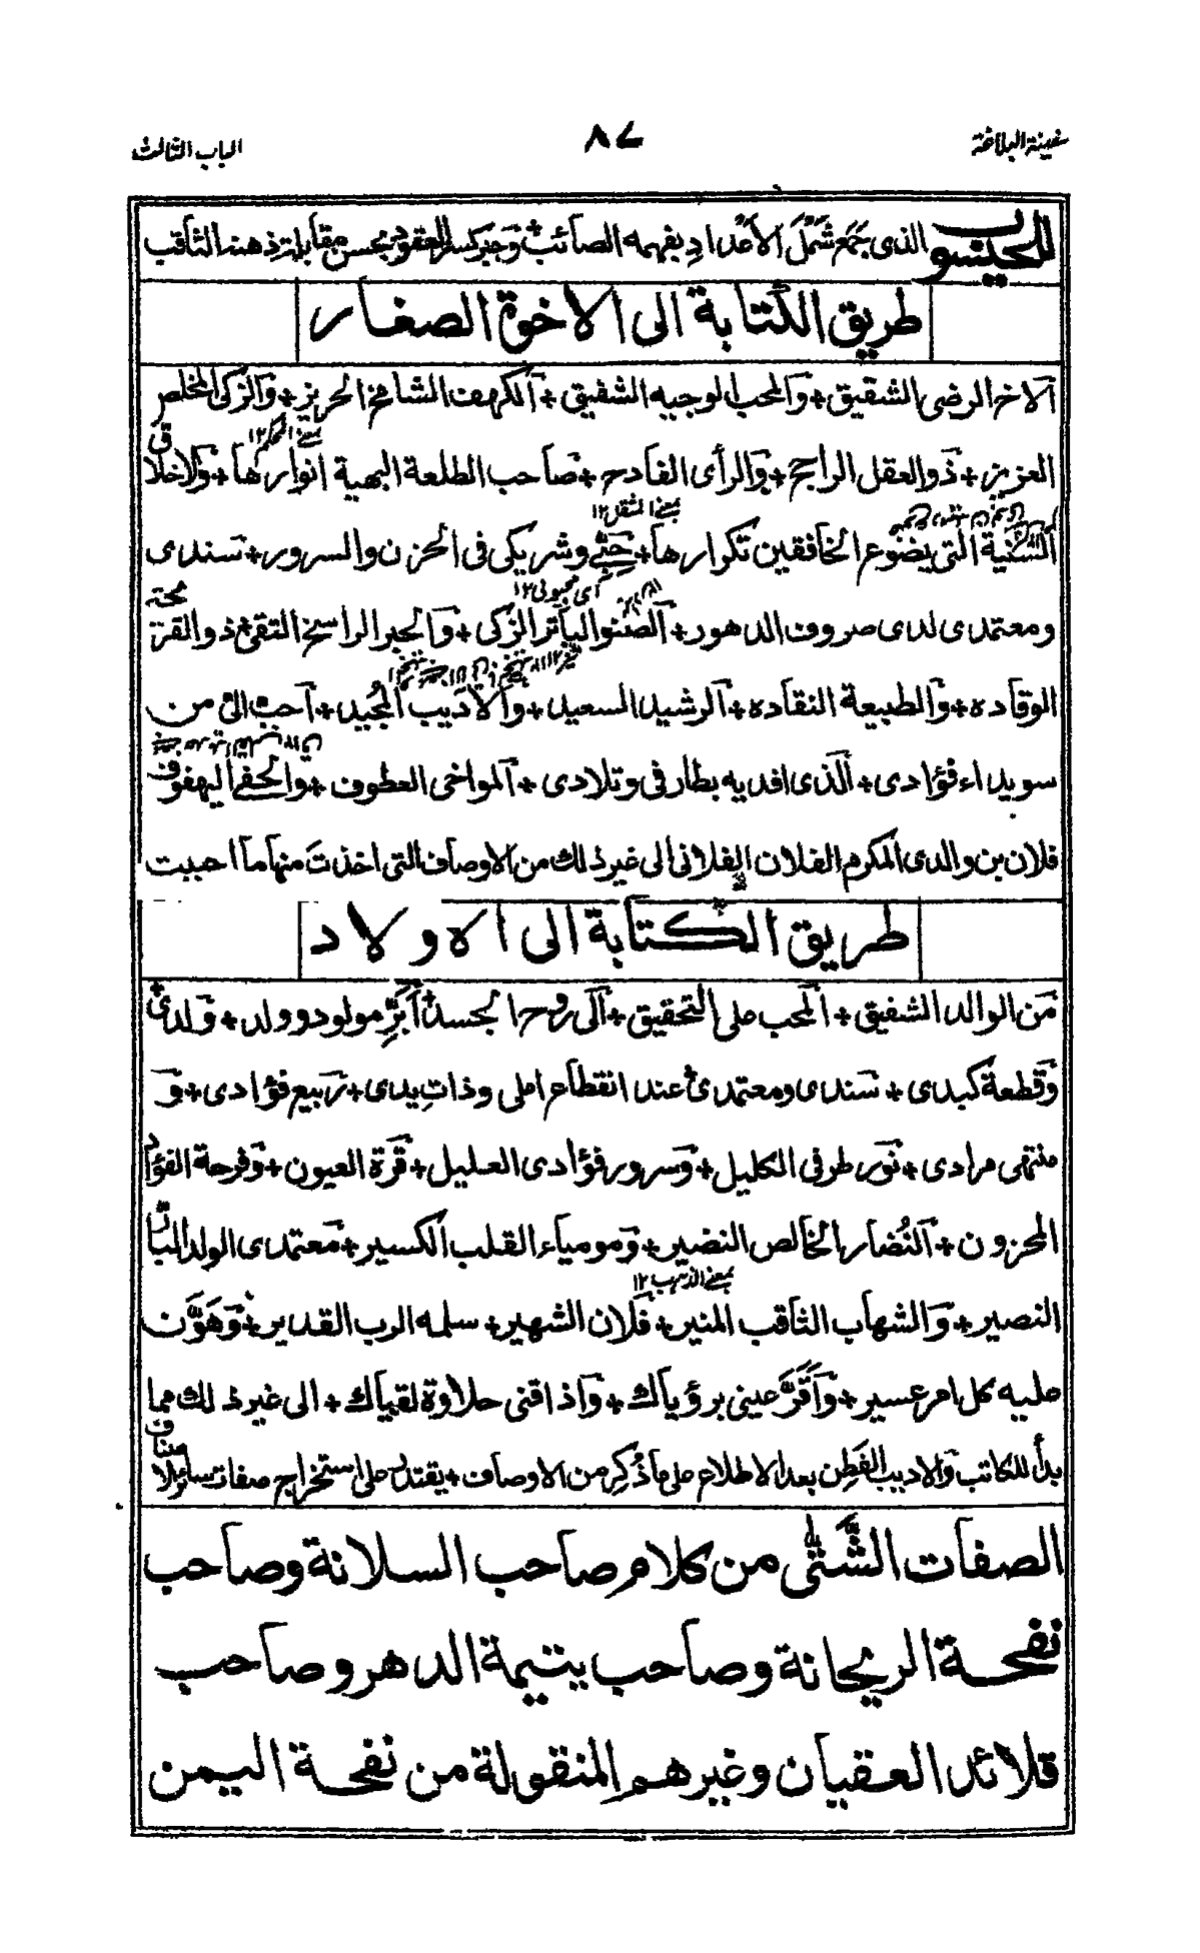 سفينة البلاغة
٨٧
الباب الثالث
الذى جَمَع شَمْلَ الأعداد بفهمه الصائب + وجبر كسر العقود بحسن مقابلة ذهنه الثاقب
طريق الكتابة الى الاخوة الصغار
الاخ الرضى الشقيق + والمحب الوجيه الشفيق + الكهف الشامخ الحريز + والزكى المخلص
بمعنى المحكم ١٢
العزيز + ذو العقل الراجح + والرأى القادح + صاحب الطلعة البهية انوارها + والاخلاق
بمعنى المثقل ١٢
السنية التى يضوع الخافقين تكرارها + حِبّى وشريكى فى الحزن والسرور + سندى
اى محبوبى ١٢
ومعتمدى لدى صروف الدهور + الصنو الباتر الزكى + والحبر الراسخ التقى + ذو القريحة
الوقاده + والطبيعة النقاده + الرشيد السعيد + والاديب المُجيد + احب الىّ من
سويداء فؤادى + الذى افديه بطارفى وتلادى + المواخى العطوف + والحفى اليهفوف
فلان بن والدى المكرم الفلان الفلانى الى غير ذلك من الاوصاف التى اخذتَ منها ما احببت
طريق الكتابة الى الاولاد
من الوالد الشفيق + المحب على التحقيق + الى روح الجسد + أبَرِّ مولود وولد + ولدى +
وقطعة كبدى + سندى ومعتمدى + عند انقطاع املى وذاتِ يدى + ربيع فؤادى + و
منتهى مرادى + نور طرفى الكليل + وسرور فؤادى العليل + قرة العيون + وفرحة الفؤاد
المحزون + النُضار الخالص النضير + ومومياء القلب الكسير + معتمدى الولد البارّ
بمعنى الذهب ١٢
النصير + والشهاب الثاقب المنير + فلان الشهير + سلمه الرب القدير + وَهَوَّن
عليه كل امر عسير + وَأَقَرَّ عينى برؤياك + واذاقنى حلاوة لقياك + الى غير ذلك مما
بدأ للكاتب والاديب الفَطِن بعد الاطلاع على ما ذُكِر من الاوصاف + يقتدر على استخراج صفات سائر الاصناف
الصفات الشَّتّٰى من كلام صاحب السلانة وصاحب
نفحة الريحانة وصاحب يتيمة الدهر وصاحب
قلائد العقيان وغيرهم المنقولة من نفحة اليمن